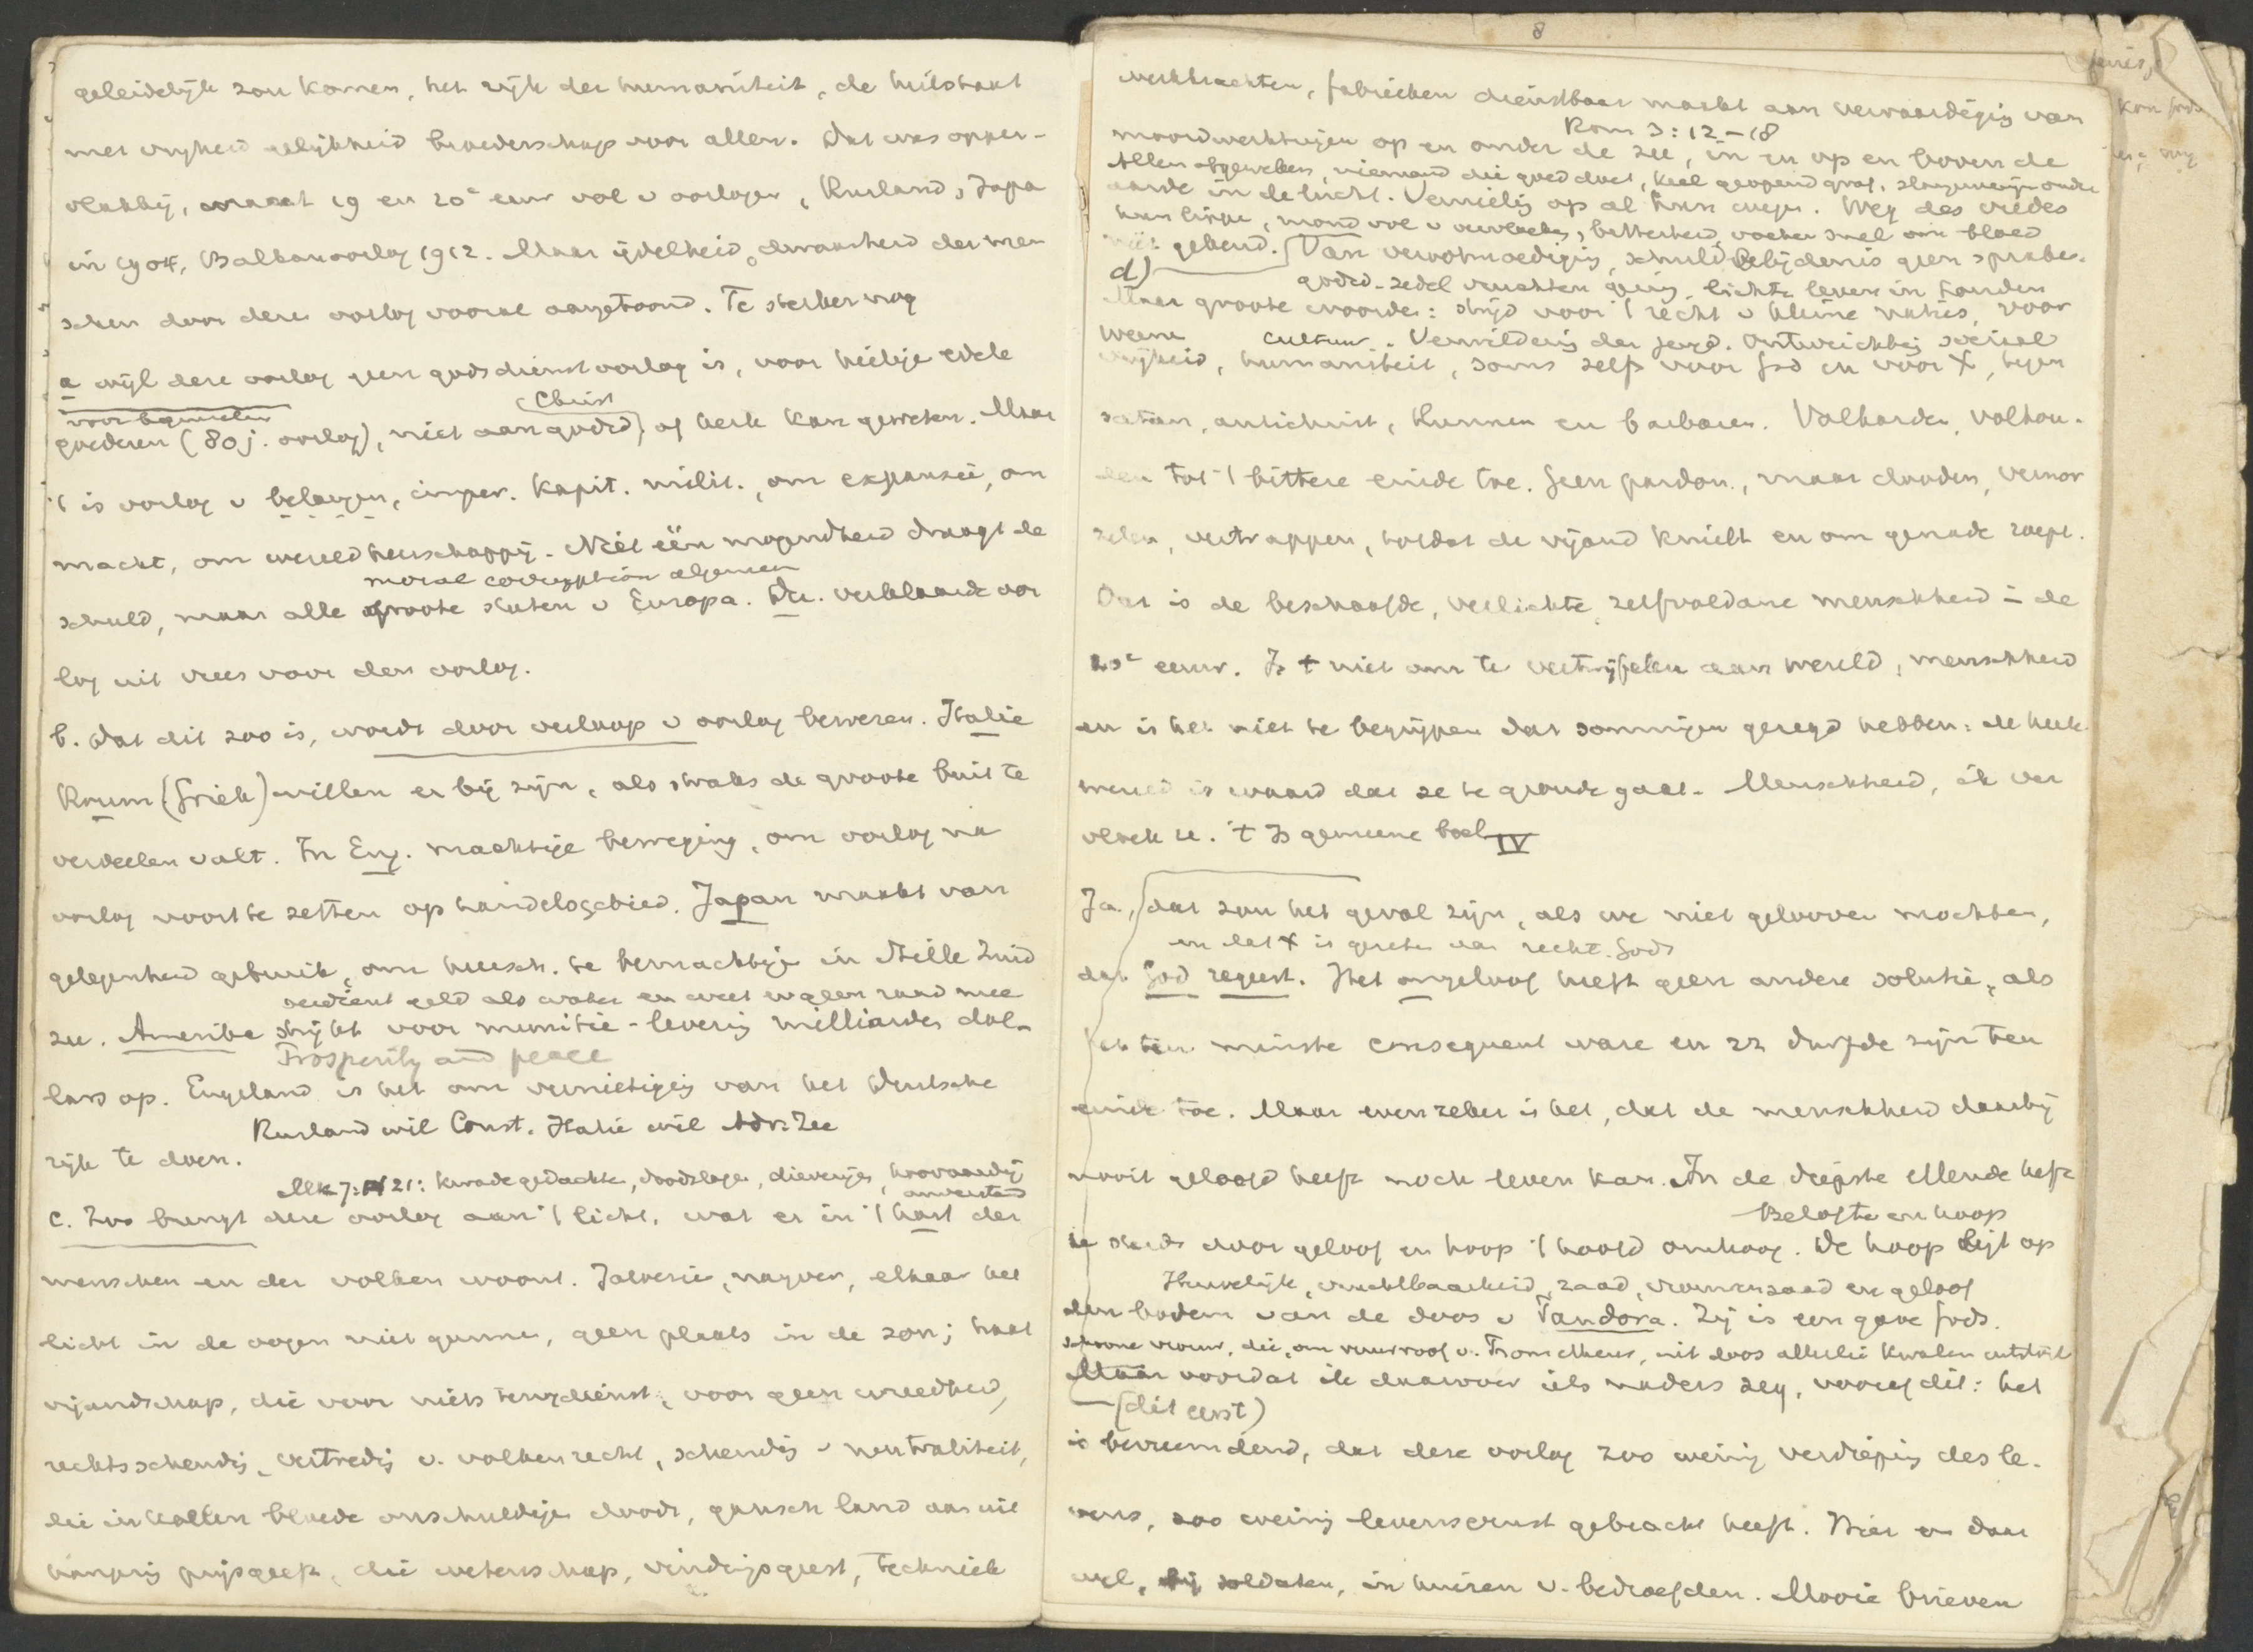 geleidelijk zou komen, het rijk der humaniteit, de heilstaat
met vrijheid gelijkheid broederschap voor allen. Dat was opper-
vlakkig, want 19 en 20e eeuw vol v oorlogen, Rusland, Japa
in 1904, Balkanoorlog 1912. Maar ijdelheid, dwaasheid der men
schen door deze oorlog vooral aangetoond. Te sterker nog
a wijl deze oorlog geen godsdienstoorlog is, voor heilige edele
voor beginselen
Christ
goederen (80 j. oorlog), niet aan godsd. of kerk kan geweten. Maar
't is oorlog v belangen, imper. kapit. milit., om expansie, om
macht, om wereldheerschappij. Niet één mogendheid draagt de
moral corruption algemeen
schuld, maar alle groote staten v Europa. Du. verklaarde oor
log uit vrees voor den oorlog.
b. Dat dit zoo is, wordt door verloop v oorlog bewezen. Italie
Roum (Griek) willen er bij zijn, als straks de groote buit te
verdeelen valt. In Eng. machtige beweging, om oorlog na
oorlog voort te zetten op handelsgebied. Japan maakt van
gelegenheid gebruik, om heersch. te bemachtigen in Stille Zuid
verdient geld als water en weet er geen raad mee
zee. Amerika strijkt voor munitie-levering milliarden dol-
Prosperity and peace
lars op. Engeland is het om vernietiging van het Duitsche
Rusland wil Const. Italie wil Adr. Zee
rijk te doen.
Mk 7:21: kwade gedachten, doodslagen, dieverijen, hoovaardij
onverstand
c. Zoo brengt deze oorlog aan 't licht, wat er in 't hart der
menschen en der volken woont. Jaloersie, nayver, elkaar het
licht in de oogen niet gunnen, geen plaats in de zon; haat
vijandschap, die voor niets terugdeinst, voor geen wreedheid,
rechtsschending, vertreding v. volkenrecht, schending v neutraliteit,
die in koelen bloede onschuldigen doodt, gansch land aan uit
hongering prijsgeeft, die wetenschap, vindingsgeest, techniek
8
werkkrachten, fabrieken dienstbaar maakt aan vervaardiging van
Rom 3:12-18
moordwerktuigen op en onder de zee, in en op en boven de
Allen afgeweken, niemand die goed doet, keel geopend graf, slangenvenijn onder
aarde in de lucht. Vernieling op al hun wegen. Weg des vredes
hun lippen, mond vol v vervloeking, bitterheid, voeten snel om bloed
niet gekend. Van verootmoediging, schuldbelijdenis geen sprake.
d)
godsd.-zedel vruchten gering. lichter leven in Londen
Maar groote woorden: strijd voor 't recht v kleine naties, voor
Weenen
cultuur. Verwildering der jeugd. Ontwrichting sociaal
vrijheid, humaniteit, soms zelfs voor God en voor X, tegen
satan, antichrist, Hunnen en barbaren. Volharden, volhou-
den tot 't bittere einde toe. Geen pardon, maar dooden, vermor
zelen, vertrappen, totdat de vijand knielt en om genade roept.
Dat is de beschaafde, verlichte, zelfvoldane menschheid in de
20e eeuw. Is 't niet om te vertwijfelen aan wereld, menschheid
en is het niet te begrijpen dat sommigen gezegd hebben: de heele
wereld is waard dat ze te gronde gaat. Menschheid, ik ver
vloek ze. 't Is gemeene boel IV
Ja, dat zou het geval zijn, als we niet gelooven mochten,
en dat X is gezeten aan recht. Gods
dat God regeert. Het ongeloof heeft geen andere solutie, als
het ten minste consequent ware en zn durfde zijn ten
einde toe. Maar even zeker is het, dat de menschheid daarbij
nooit geloofd heeft noch leven kan. In de diepste ellende heft
Belofte en hoop
ze steeds door geloof en hoop 't hoofd omhoog. De hoop ligt op
Huwelijk, vruchtbaarheid, zaad, vrouwenzaad en geloof
den bodem van de doos v Pandora. Zij is een gave Gods.
schoone vrouw, die, om vuurroof v. Prometheus, uit doos allerlei kwalen uitstort
Maar voordat ik daarover iets naders zeg, vooraf dit: het
(dit eerst)
is bevreemdend, dat deze oorlog zoo weinig verdieping des le-
vens, zoo weinig levensernst gebracht heeft. Hier en daar
wel, bij soldaten, in huizen v. bedroefden. Mooie brieven